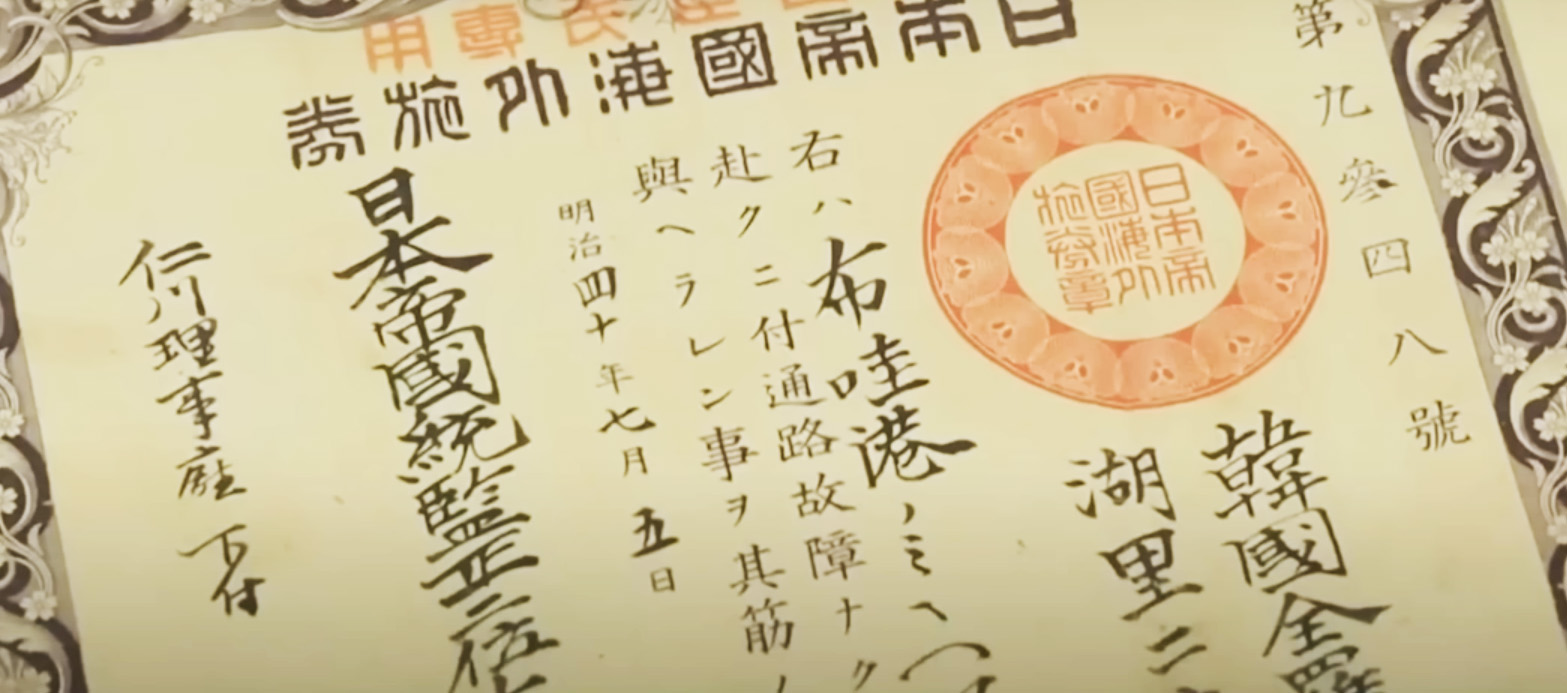 日本帝國海外旅券
專用
第九參四八號
日本帝
國海外
旅券章
韓國全羅
湖里二
右ハ布哇港ノミヘ
赴クニ付通路故障ナク
與ヘラレン事ヲ其筋ノ
明治四十年七月五日
日本帝國統監正二位
仁川理事廳下付